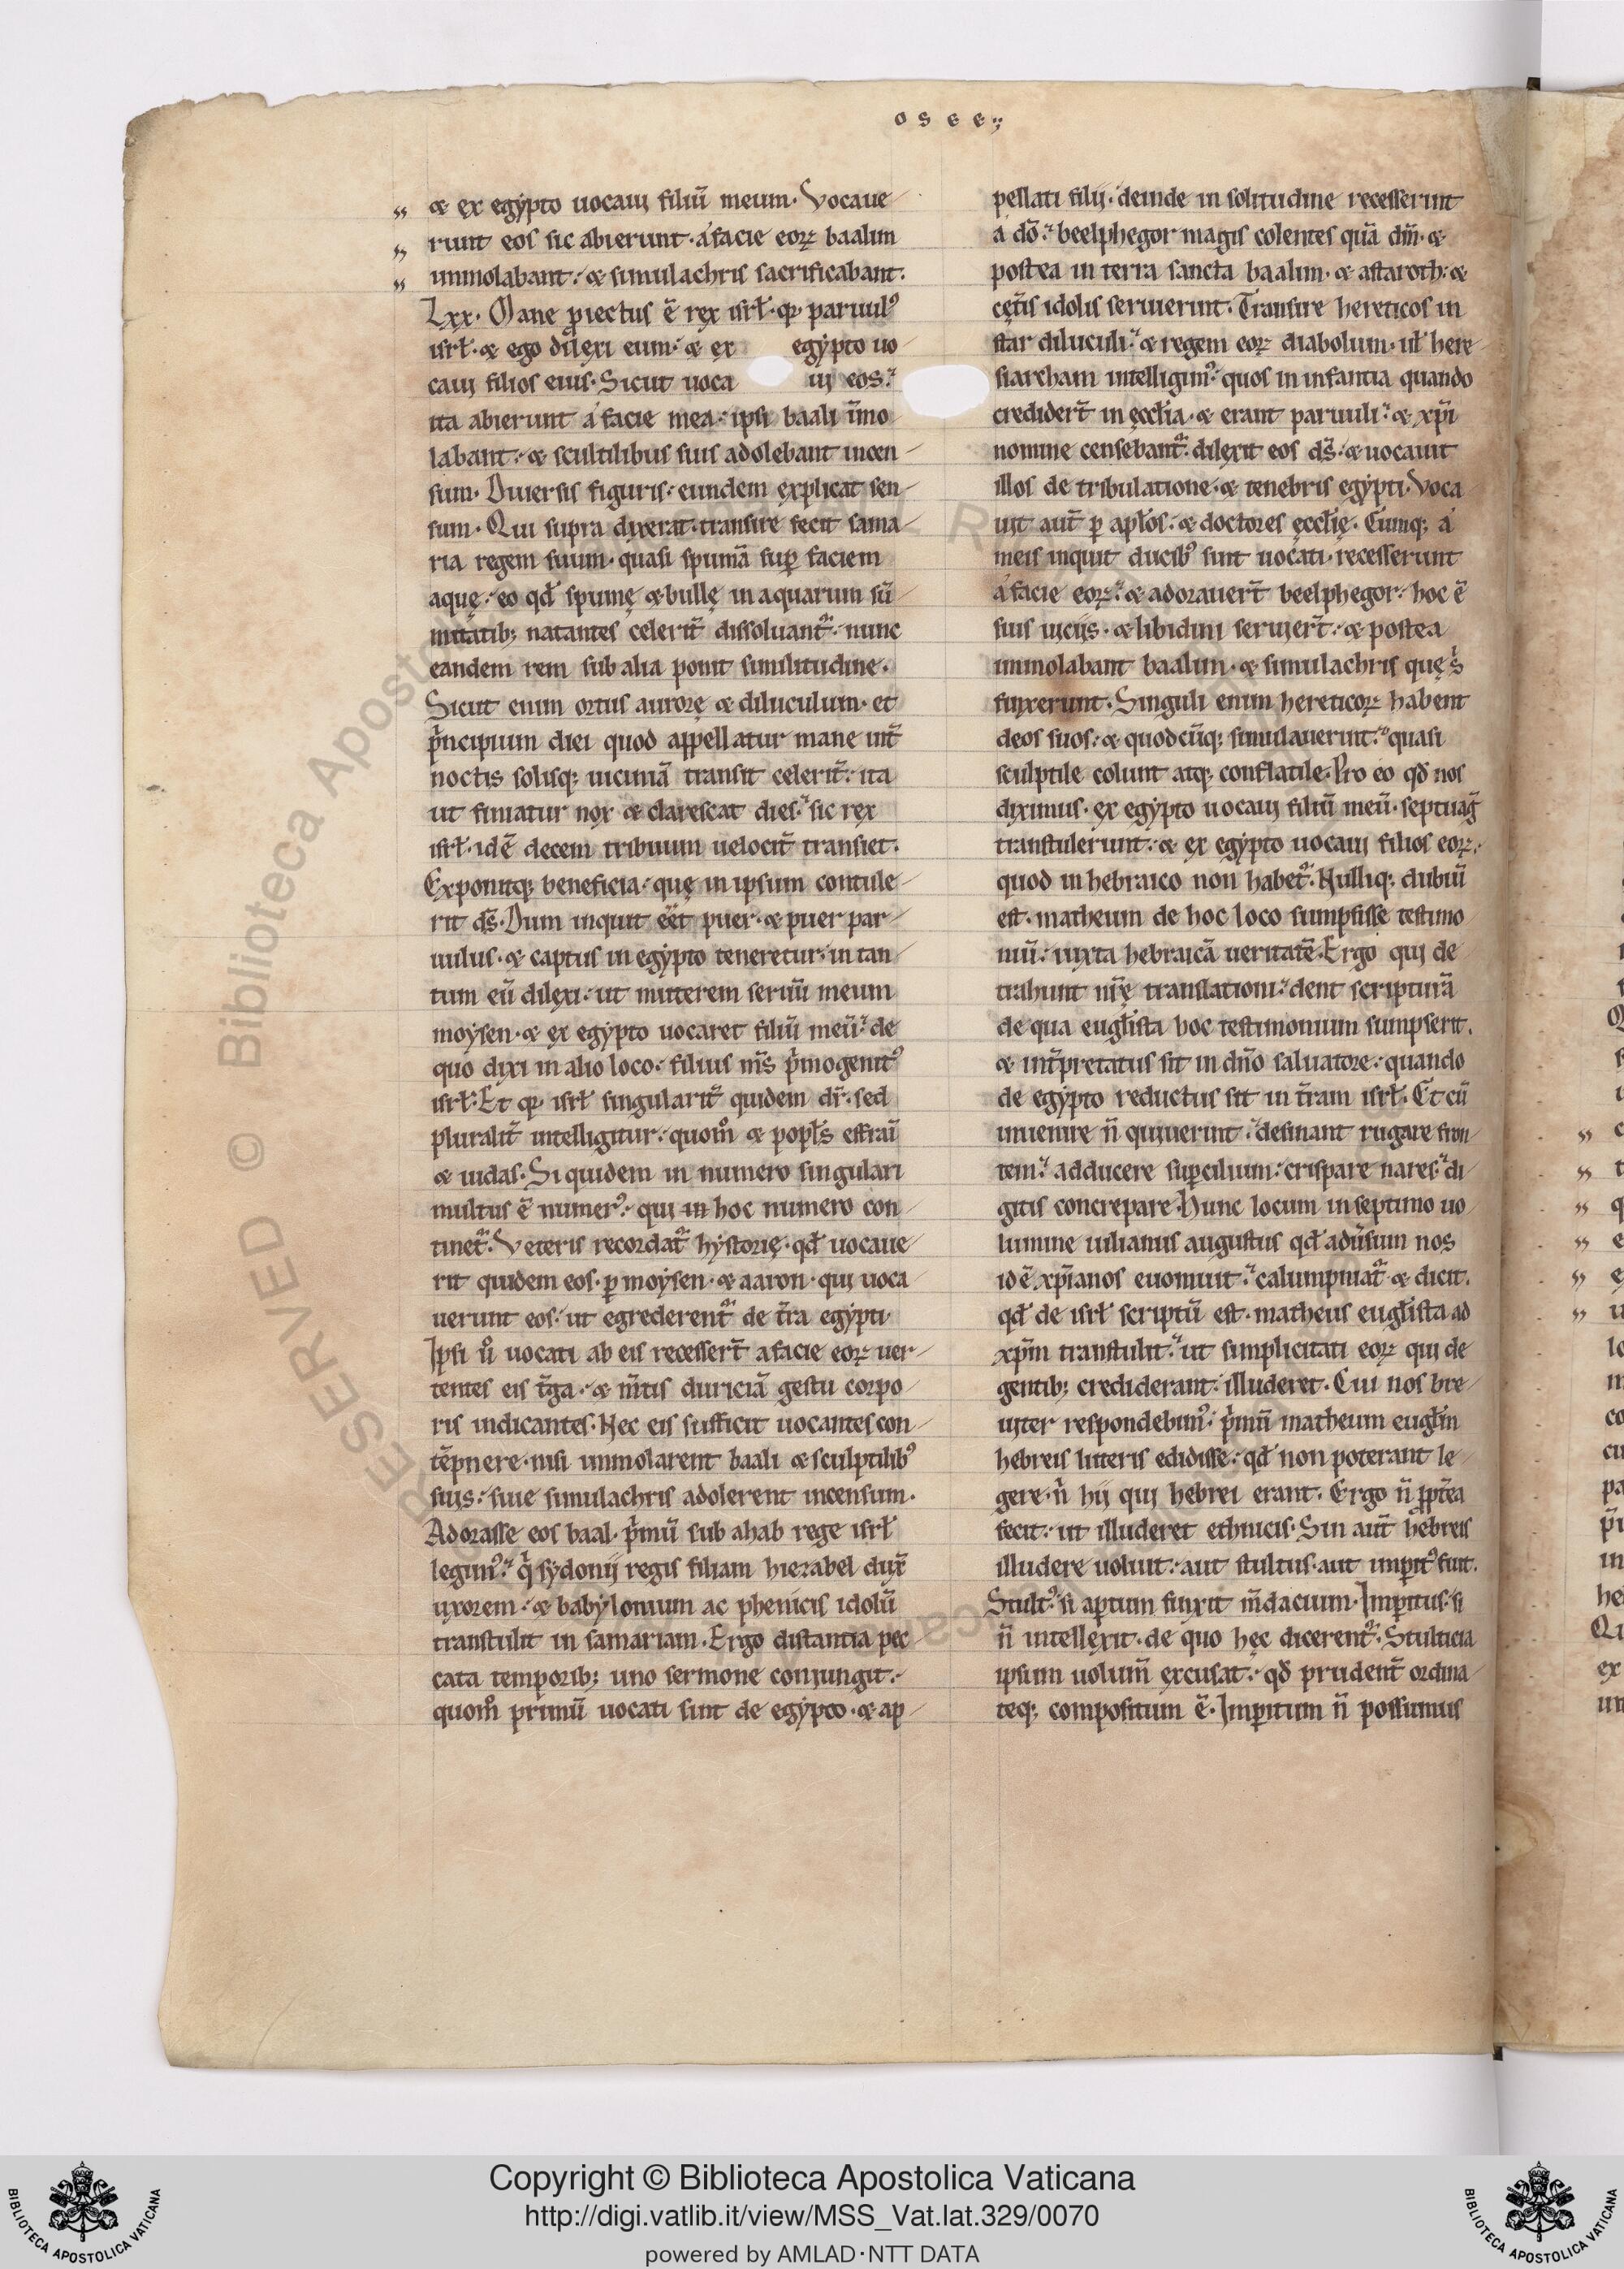 osee;
& ex egẏpto uocaui filiũ meum. Vocaue
runt eos sic abierunt. a facie eoꝝ baalim
immolabant: & simulachris sacrificabant.
Lxx. Mane ꝓiectus ẽ rex isrł. qꝛ paruulꝰ
isrł. & ego dilexi eum. & ex egẏpto uo
caui filios eius. Sicut uoca ui eos:
ita abierunt a facie mea. ipsi baali ĩmo
labant. & scultilibus suis adolebant incen
sum. Diuersis figuris. eundem explicat sen
sum. Qui supra dixerat. transire fecit sama
ria regem suum. quasi spumã suꝑ faciem
aquę. eo qđ spumę & bullę in aquarum sũ
mitatib; natantes celerit̃ dissoluant᷑. nunc
eandem rem sub alia ponit similitudine.
Sicut enim ortus aurorę & diluculum. et
pͥncipium diei quod appellatur mane int̃
noctis solisq; uiciniã transit celerit̃. ita
ut finiatur nox & clarescat dies. sic rex
isrł. idẽ decem tribuum uelocit̃ transiet.
Exponitq; beneficia. quę in ipsum contule
rit ds̃. Dum inquit eẽt puer. & puer par
uulus. & captus in egẏpto teneretur. in tan
tum eũ dilexi. ut mitterem seruũ meum
moẏsen. & ex egẏpto uocaret filiũ meũ. de
quo dixi in alio loco. filius ms̃ pͥmogenitꝰ
isrł. Et qꝛ isrł singularit̃ quidem dr̃. sed
pluralit̃ intelligitur. quom̊ & popłs effraĩ
& iudas. Siquidem in numero singulari
multus ẽ numerꝰ. qui in hoc numero con
tinet᷑. Veteris recordat᷑ hẏstorię. qđ uocaue
rit quidem eos. ꝑ moẏsen. & aaron. qui uoca
uerunt eos. ut egrederent᷑ de t̃ra egẏpti.
Ipsi u̾ uocati ab eis recessert̃ a facie eoꝝ uer
tentes eis t̃ga. & m̃tis duriciã gestu corpo
ris indicantes. Nec eis sufficit uocantes con
tẽpnere. nisi immolarent baali & sculptilibꝰ
suis. suie simulachris adolerent incensum.
Adorasse eos baal. pͥmũ sub ahab rege isrł
legimꝰ. qͥ sẏdonij regis filiam hiezabel dux̃
uxorem. & babẏlonium ac phenicis idolũ
transtulit in samariam. Ergo distantia pec
cata temporib; uno sermone coniungit.
quom̊ primũ uocati sint de egẏpto. & ap
pellati filij. deinde in solitudine recesserint
a dõ. beelphegor magis colentes quã dm̃. &
postea in terra sancta baalim. & astaroth. &
cęt̃is idolis seruierint. Transire hereticos in
star diluculi. & regem eoꝝ diabolum. uł here
siarcham intelligimꝰ. quos in infantia quando
credidert̃ in ęccłia. & erant paruuli. & xp̃i
nomine censebant᷑. dilexit eos ds̃. & uocauit
illos de tribulatione. & tenebris egẏpti. Voca
uit aut̃ ꝑ apłos. & doctores ęccłię. Cumq; a
meis inquit ducibꝰ sint uocati. recesserunt
a facie eoꝝ. & adorauert̃ beelphegor. hoc ẽ
suis uicijs. & libidini seruiert̃. & postea
immolabant baalim. & simulachris quę s̾
finxerunt. Singuli enim hereticoꝝ habent
deos suos. & quodcũq; simulauerint. quasi
sculptile colunt atq; conflatile. Pro eo qđ nos
diximus. ex egẏpto uocaui filiũ meũ. septuag̃
transtulerunt. & ex egẏpto uocaui filios eoꝝ.
quod in hebraico non habet᷑. Nulliq; dubiũ
est. matheum de hoc loco sumpsisse testimo
niũ. iuxta hebraicã ueritatẽ. Ergo qui de
trahunt nr̃ę translationi. dent scripturã
de qua eugłista hoc testimonium sumpserit.
& int̃pretatus sit in dño saluatore. quando
de egẏpto reductus sit in t̃ram isrł. Et cũ
inuenire ñ quiuerint. desinant rugare fron
tem. adducere suꝑcilium. crispare nares. di
gitis concrepare. Hunc locum in septimo uo
lumine iulianus augustus qđ adũsum nos
idẽ xp̃ianos euomuit. calumpniat᷑ & dicit.
qđ de isrł scriptũ est. matheus eugłista ad
xpm̃ transtulit. ut simplicitati eoꝝ qui de
gentib; crediderant. illuderet. Cui nos bre
uiter respondebimꝰ. pͥmũ matheum eugłm
hebreis litteris edidisse. qđ non poterant le
gere. ñ hij qui hebrei erant. Ergo ñ ꝓpt̃ea
fecit. ut illuderet ethnicis. Sin aut̃ hebreis
illudere uoluit. aut stultus. aut imꝑitꝰ fuit.
Stultꝰ. si aꝑtum finxit m̃dacium. Imꝑitus. si
ñ intellexit. de quo hęc dicerent᷑. Stulticia
ipsum uolum̃ excusat. qđ prudent̃ ordina
teq; compositum ẽ. Imꝑitum ñ possumus
© Biblioteca Apostolica Vaticana
RESERVED
Copyright © Biblioteca Apostolica Vaticana
http://digi.vatlib.it/view/MSS_Vat.lat.329/0070
powered by AMLAD·NTT DATA
BIBLIOTECA APOSTOLICA VATICANA
BIBLIOTECA APOSTOLICA VATICANA